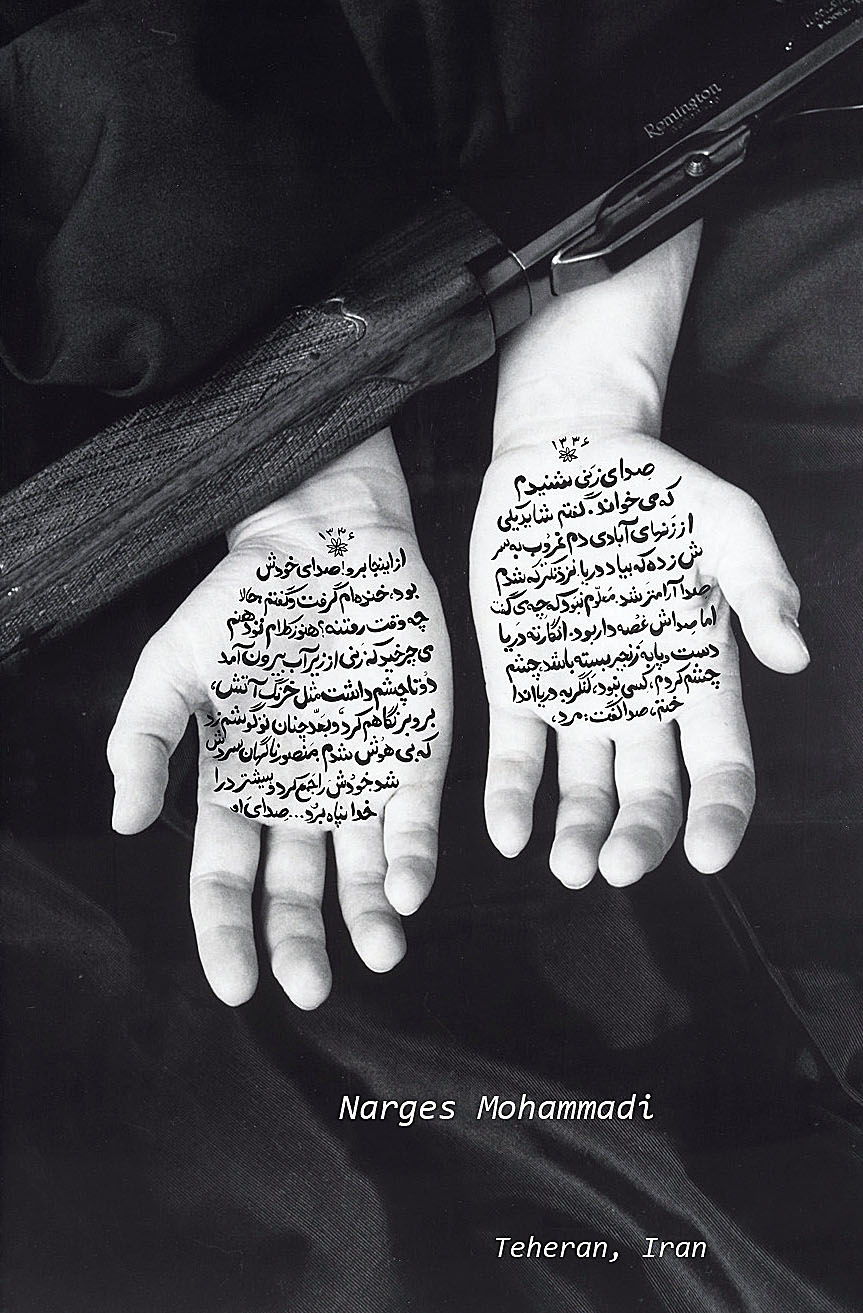 Remington
۱۳۳۶
صدای زنی شنیدم
که می خواند. گفتم شاید یکی
از زنهای آبادی دم غروب به سر
ش زده که بیاد دریا. نزدیکتر که شدم
صدا آرامتر شد. معلوم نبود که چه می گفت
اما صداش غصه دار بود. انگار ته دریا
دست و پا به زنجیر بسته باشد. چشم
چشم کردم، کسی نبود، لنگر به دریا اندا
ختم، صدا گفت: مرد،
۱۳۳۶
از اینجا برو! صدای خودش
بود. خنده ام گرفت و گفتم حالا
چه وقت رفتنه؟ هنوز کلام تو دهنم
می چرخید که زنی از زیر آب بیرون آمد
دو تا چشم داشت مثل خرنگ آتش،
بروبر نگاهم کرد و بعد چنان تو گوشم زد
که بی هوش شدم. منصور ناگهان سردش
شد. خودش را جمع کرد و بیشتر در را
خدا پناه برد... صدای او
Narges Mohammadi
Teheran, Iran